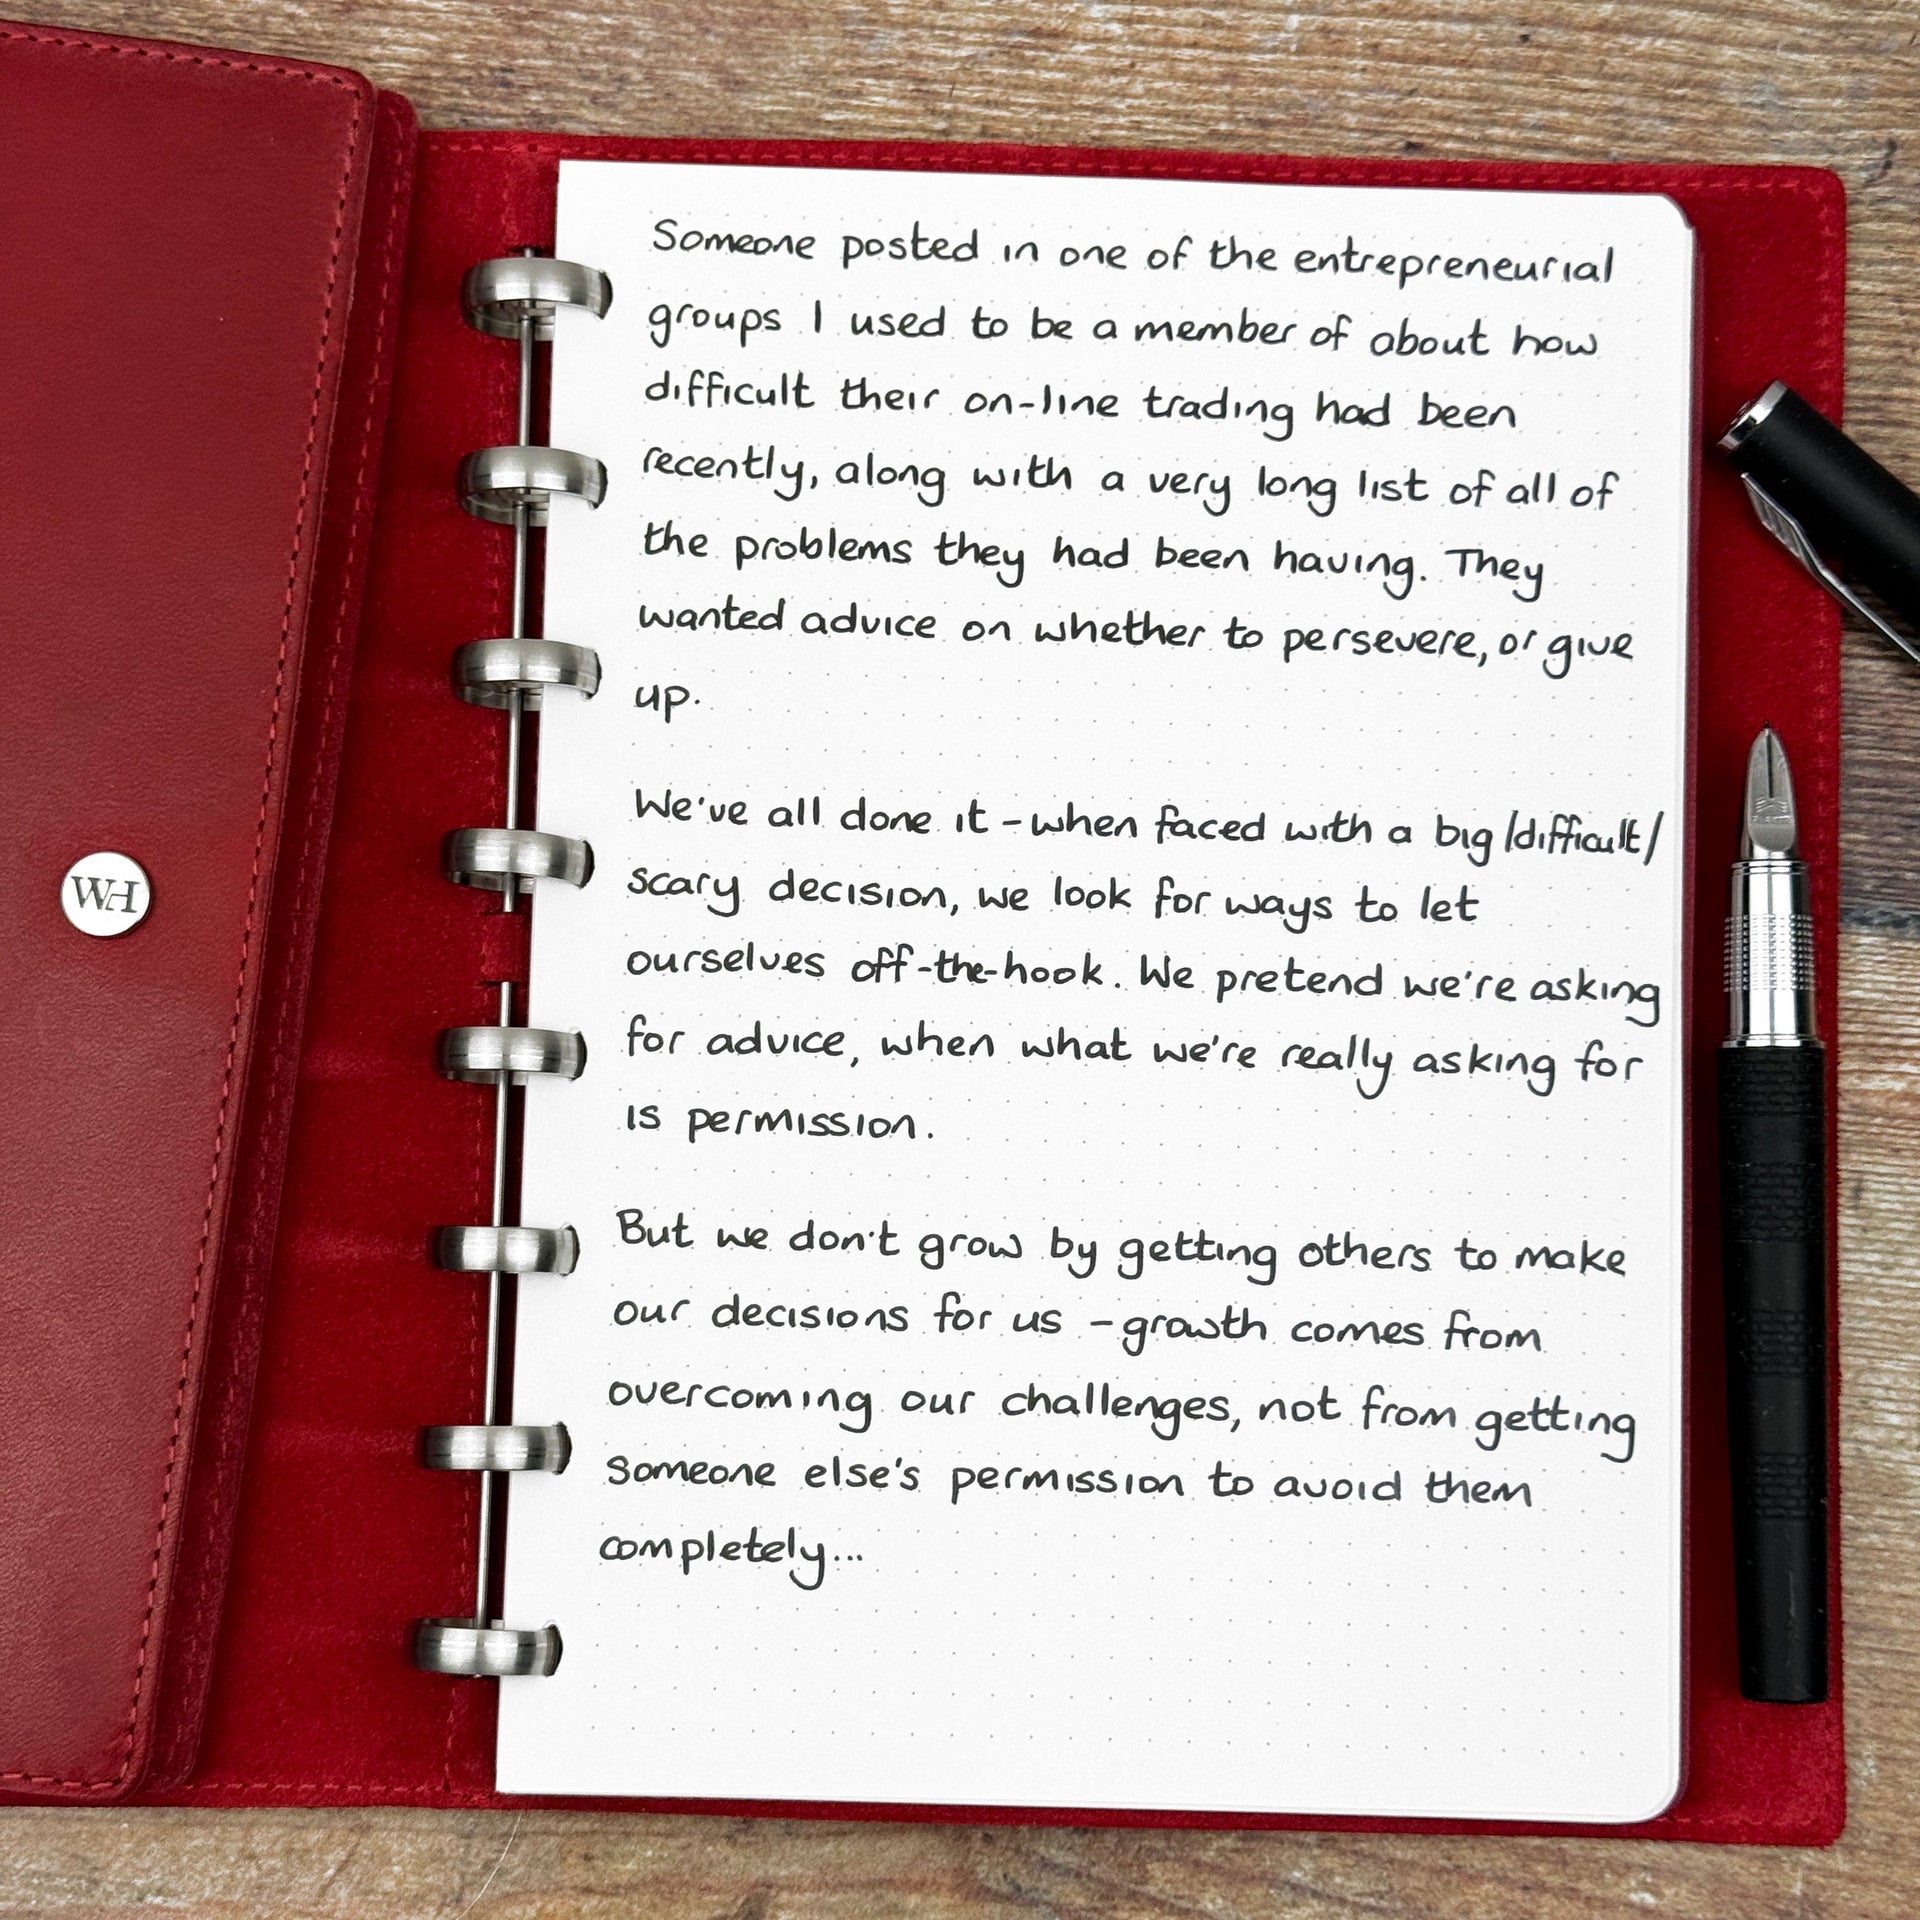 Someone posted in one of the entrepreneurial
groups I used to be a member of about how
difficult their on-line trading had been
recently, along with a very long list of all of
the problems they had been having. They
wanted advice on whether to persevere, or give
up.
We've all done it - when faced with a big/difficult/
scary decision, we look for ways to let
ourselves off-the-hook. We pretend we're asking
for advice, when what we're really asking for
is permission.
But we don't grow by getting others to make
our decisions for us - growth comes from
overcoming our challenges, not from getting
someone else's permission to avoid them
completely...
WH